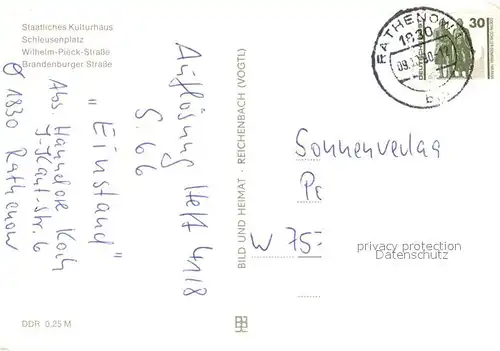 Staatliches Kulturhaus
Schleusenplatz
Wilhelm-Pieck-Straße
Brandenburger Straße
Auflösung Heft 4118
S. 66
"Einstand"
Abs. Hannelore Koch
J.-Kant-Str. 6
1830 Rathenow
DDR 0,25 M
BILD UND HEIMAT · REICHENBACH (VOGTL)
RATHENOW 1
1830
30
Sonnenverlag
W 75-
privacy protection
Datenschutz